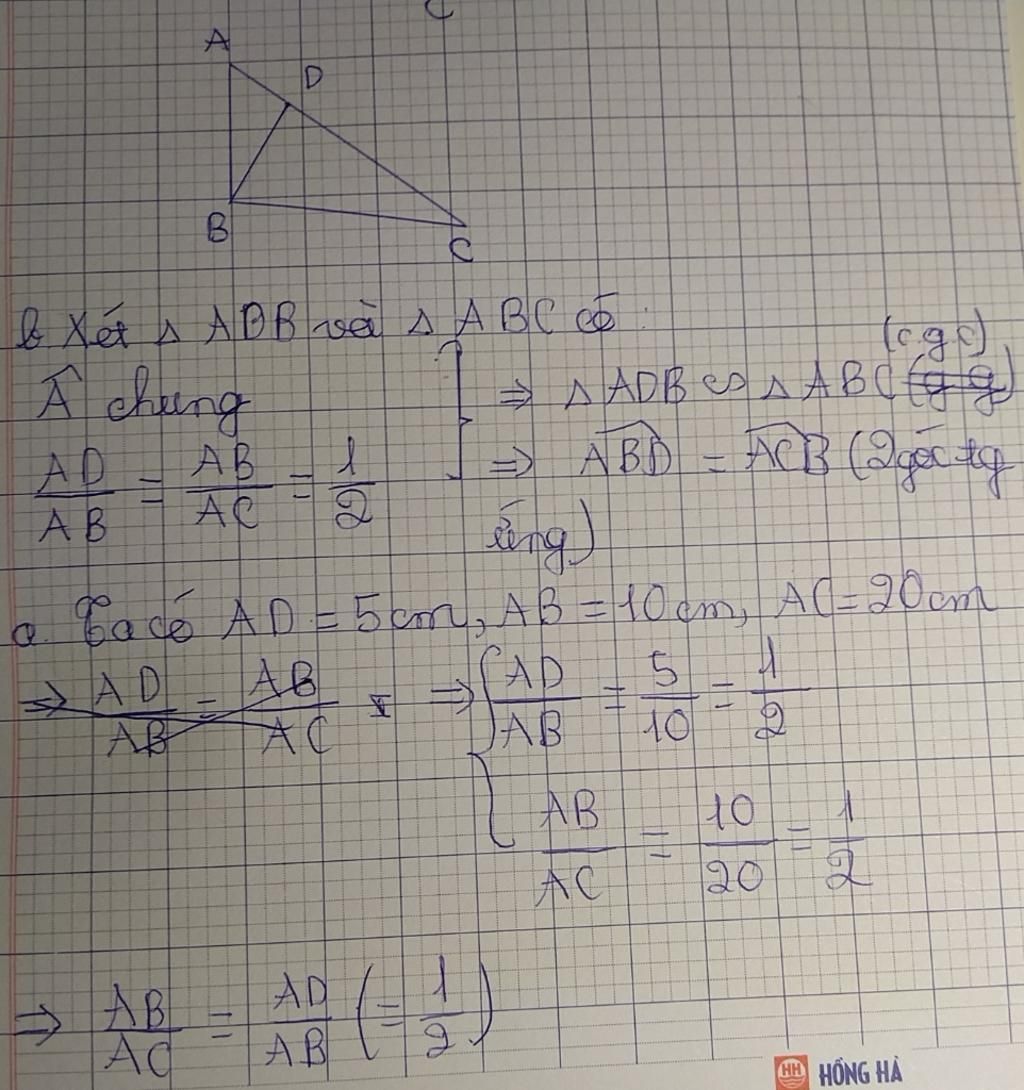 A
D
B
C
b Xét △ ADB và △ ABC có :
Â chung
AD/AB = AB/AC = 1/2
(c g c)
⇒ △ ADB ∽ △ ABC (g g)
⇒ ABD = ACB (2 góc tg
ứng)
a. Ta có AD = 5 cm, AB = 10 cm, AC = 20 cm
⇒ AD/AB = AB/AC ⇒ { AD/AB = 5/10 = 1/2
AB/AC = 10/20 = 1/2
⇒ AB/AC = AD/AB (= 1/2)
HH HỒNG HÀ